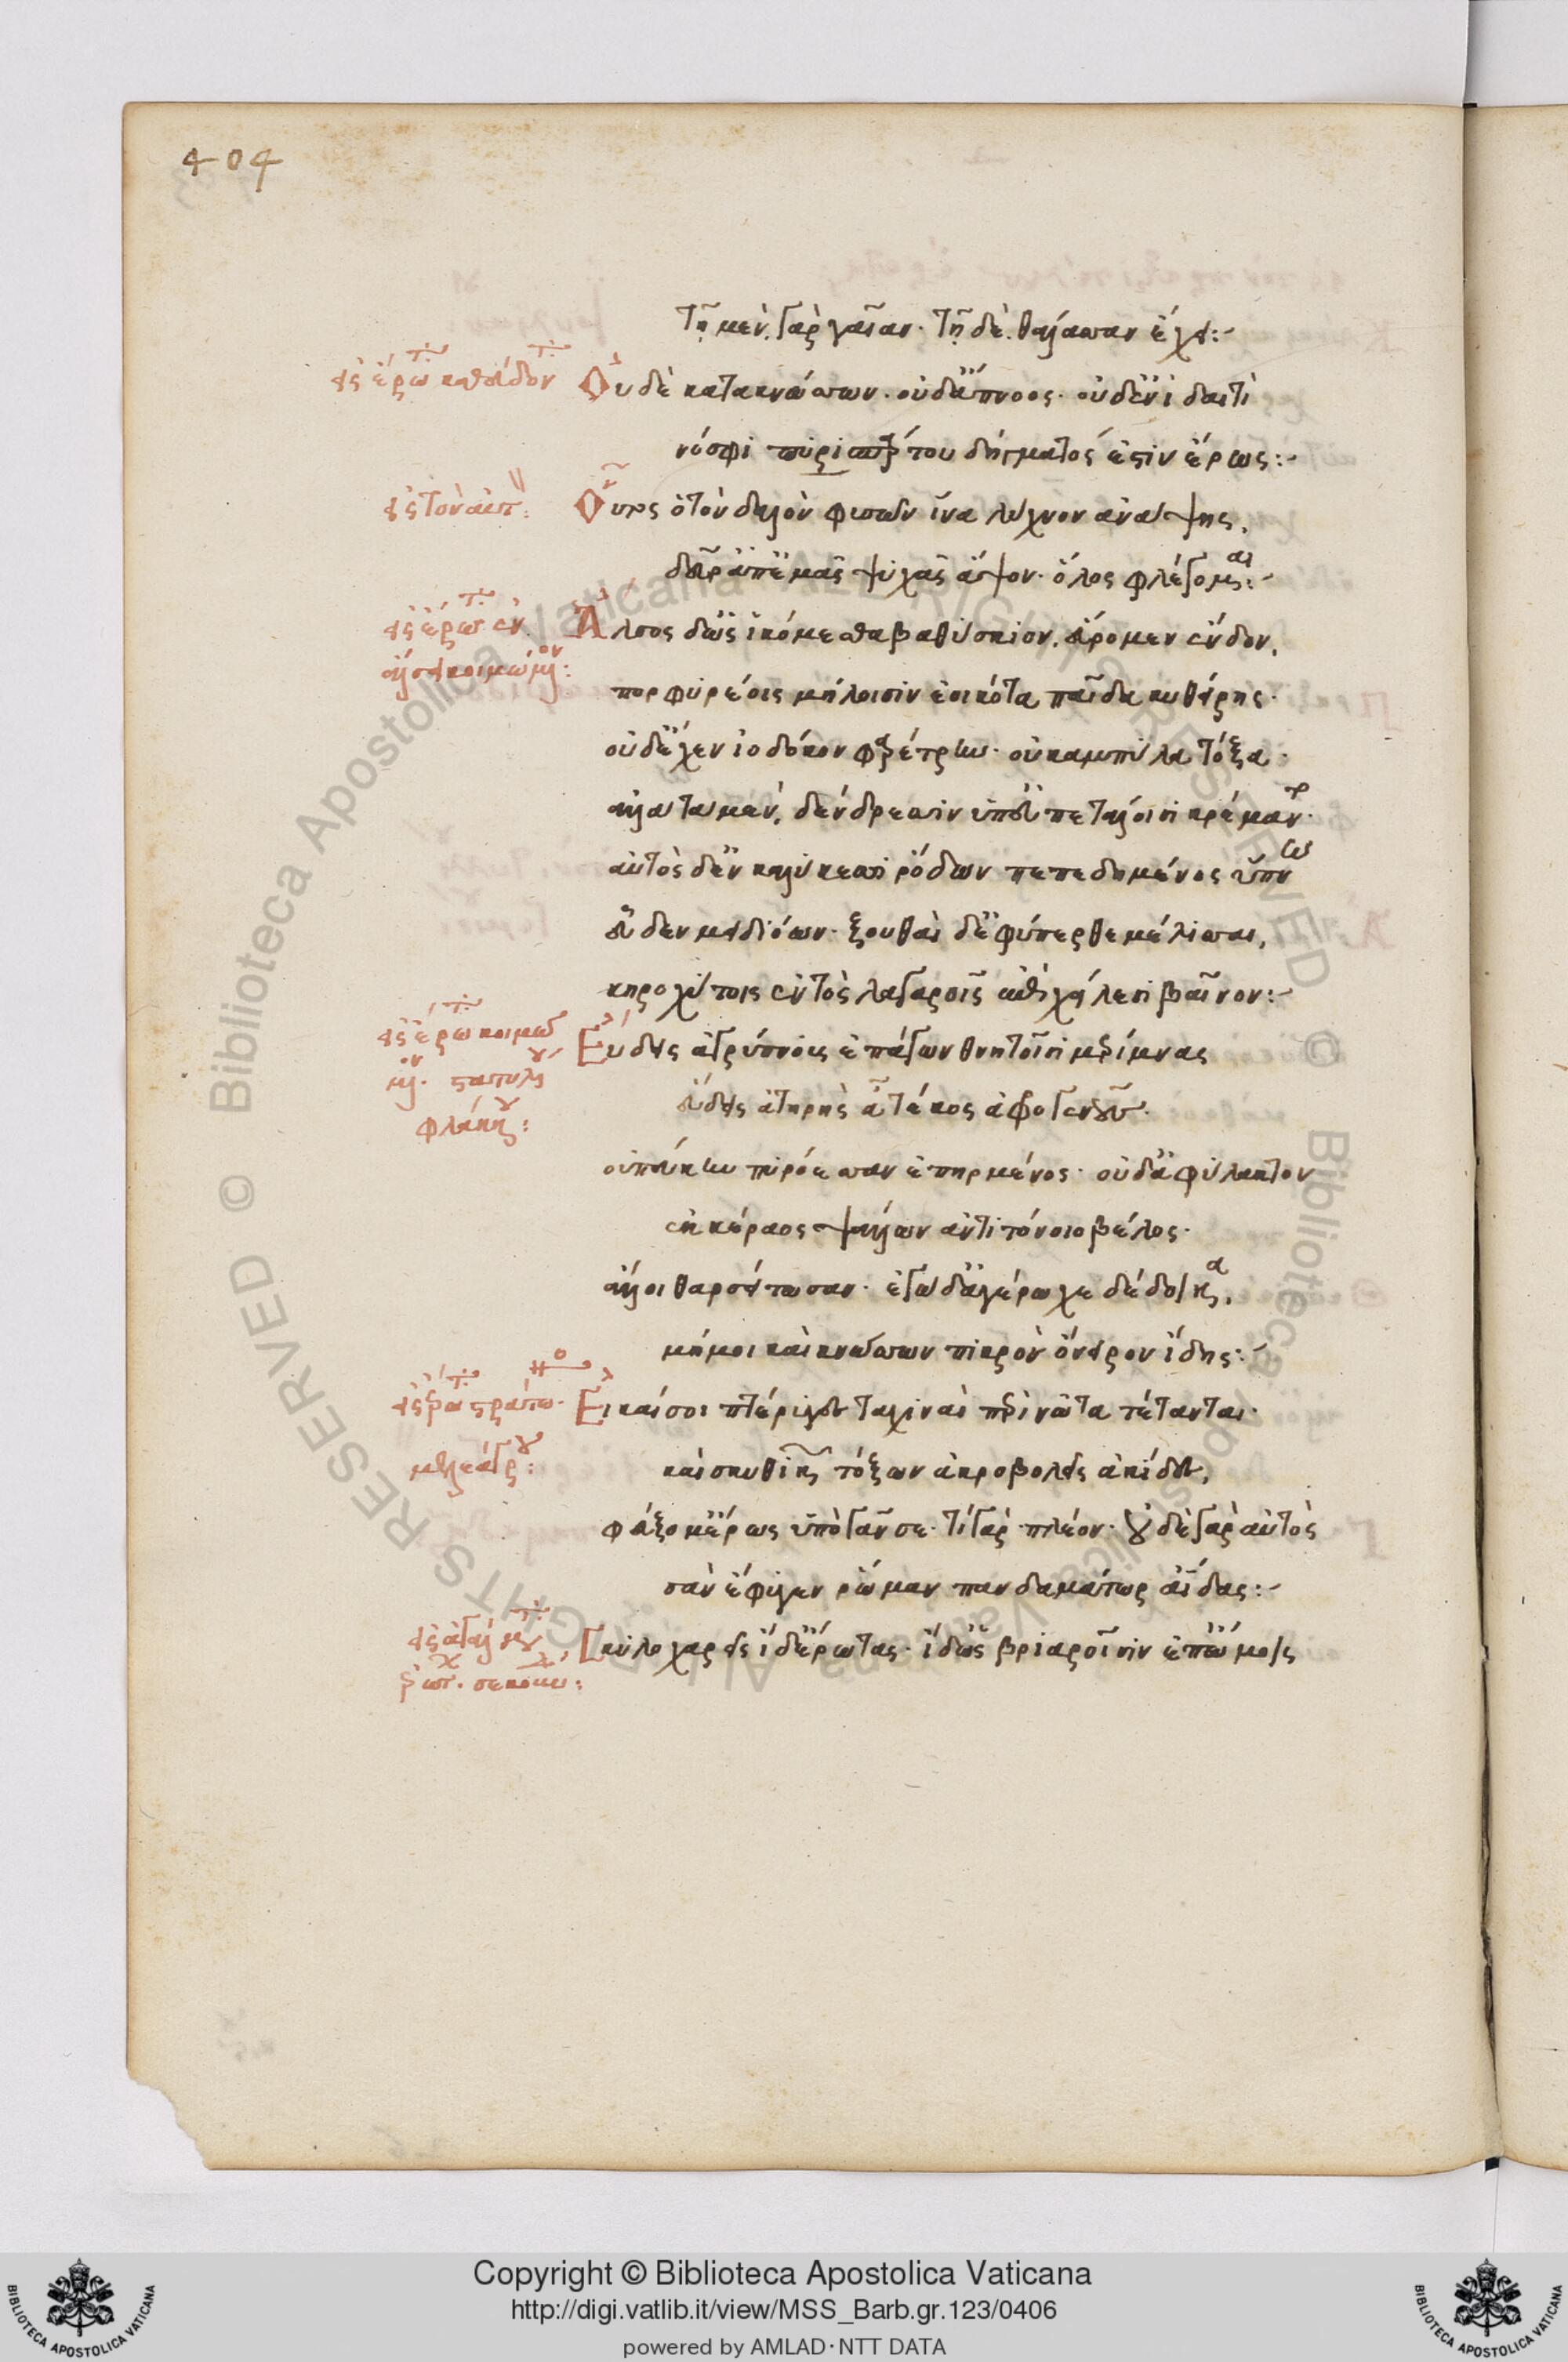 404
τῇ μὲν. γὰρ γαῖαν· τῇ δὲ. θάλασσαν ἔχει:~
εἰς ἔρωτα καθεύδοντα
Οὐδὲ κατακνώσσων· οὐδἄπνοος· οὐδἐνὶ δαιτὶ
νόσφι πυρισπάρτου δήγματός ἐστιν ἔρως:~
εἰς τὸν αὐτ:
Οὗτος ὁ τὸν δαλὸν φυσῶν ἵνα λύχνον ἀνάψης,
δεῦρ ἀπἐμᾶς ψυχᾶς ἅψον· ὅλος φλέγομαι:~
εἰς ἔρωτα ἐν
ἄλσει κοιμώμενον:
Ἄλσος δὡς ἱκόμεσθα βαθύσκιον, εὕρομεν ἔνδον,
πορφυρέοις μήλοισιν ἐοικότα παῖδα κυθήρης·
οὐδἔχεν ἰοδόκον φαρέτρην· οὐ καμπύλα τόξα·
ἀλλὰ τὰ μὲν, δένδρεσσιν ὑπεὐπετάλοισι κρέμαντο·
αὐτὸς δἐν καλύκεσσι ῥόδων πεπεδημένος ὕπνω
εὗδεν μειδιόων· ξουθαὶ δἐφύπερθε μέλισσαι,
κηροχύτοις ἐντὸς λαγαροῖς ἐπὶ χείλεσι βαῖνον:~
εἰς ἔρωτα κοιμώ
μενον. στατυλλίου
φλάκκου:
Εὕδεις ἀγρύπνους ἐπάγων θνητοῖσι μερίμνας
εὕδεις ἀτηρῆς ἆ τέκος ἀφρογενοῦς·
οὐ πεύκην πυρόεσσαν ἐπηρμένος· οὐδἀφύλακτον
ἐκ κέραος ψάλλων ἀντιτόνοιο βέλος·
ἄλλοι θαρσείτωσαν· ἐγὼ δἀγέρωχε δέδοικα,
μή μοι καὶ κνώσσων πικρὸν ὄνειρον ἴδης:~
μελεάγρου:
Εἰ καί σοι πτέρυγες ταχιναὶ περὶ νῶτα τέτανται·
καὶ σκυθικῶν τόξων ἀκροβολεῖς ἀκίδας,
φεύξομἔρως ὑπὸ γᾶν σε· τί γὰρ πλέον· οὐδὲ γὰρ αὐτὸς
σὰν ἔφυγεν ῥώμαν πανδαμάτωρ ἀΐδας:~
Σκυλοχαρεῖς ἴδἔρωτας· ἴδὡς βριαροῖσιν ἐπὤμοις
Copyright © Biblioteca Apostolica Vaticana
http://digi.vatlib.it/view/MSS_Barb.gr.123/0406
powered by AMLAD·NTT DATA